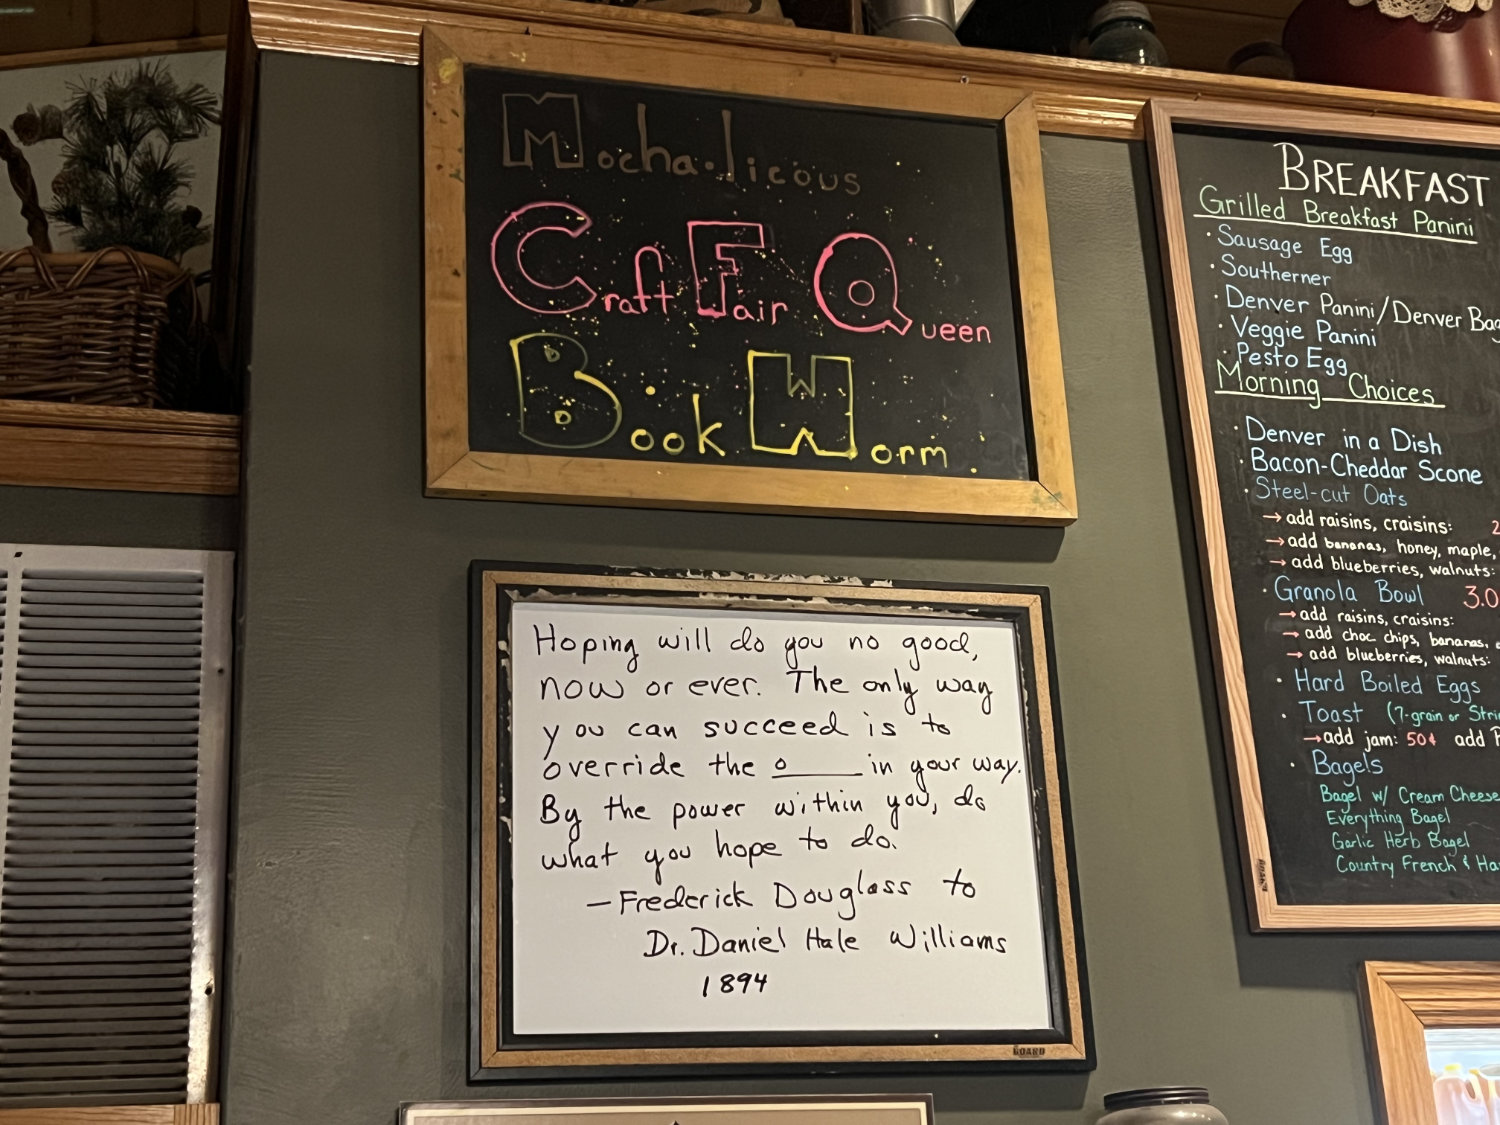 Mocha-licious
Craft Fair Queen
Book Worm.
Hoping will do you no good,
now or ever. The only way
you can succeed is to
override the o_____ in your way.
By the power within you, do
what you hope to do.
— Frederick Douglass to
Dr. Daniel Hale Williams
1894
BOARD
BREAKFAST
Grilled Breakfast Panini
· Sausage Egg
· Southerner
· Denver Panini/Denver
· Veggie Panini
· Pesto Egg
Morning Choices
· Denver in a Dish
· Bacon-Cheddar Scone
· Steel-cut Oats
→ add raisins, craisins:
→ add bananas, honey, maple,
→ add blueberries, walnuts:
· Granola Bowl 3.0
→ add raisins, craisins:
→ add choc chips, bananas,
→ add blueberries, walnuts:
· Hard Boiled Eggs
· Toast (7-grain or
→ add jam: 50¢ add
· Bagels
Bagel w/ Cream Cheese
Everything Bagel
Garlic Herb Bagel
Country French &